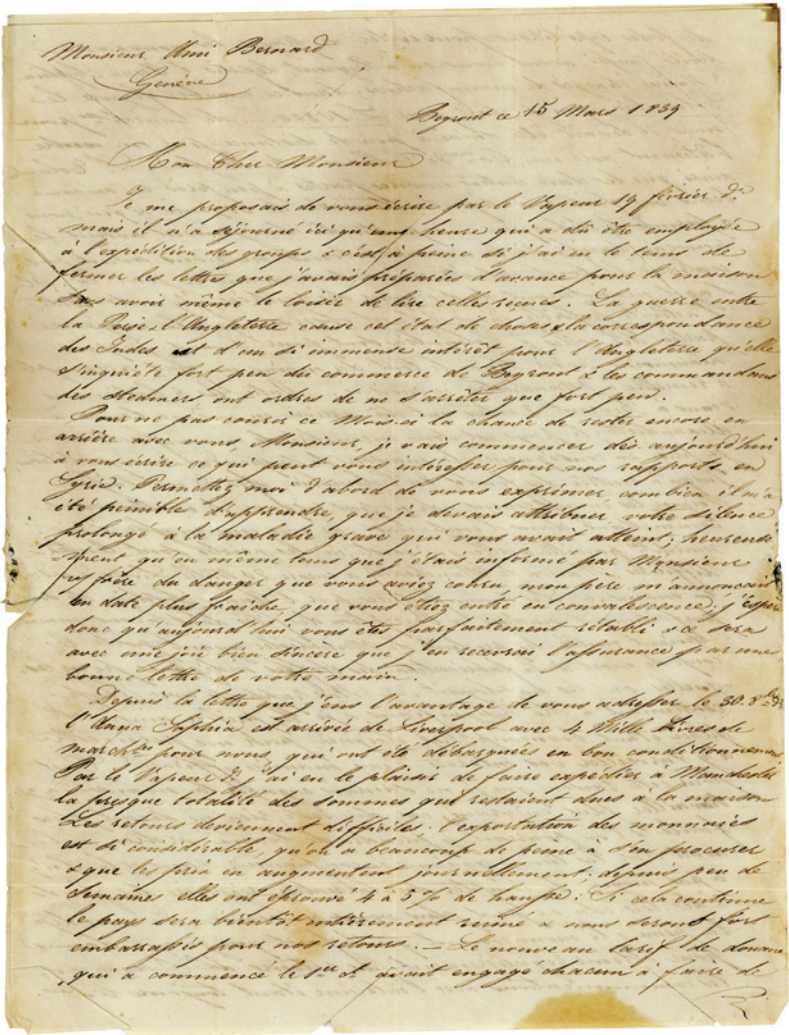 Monsieur Ami Bernard
Genève
Beyrout ce 15 Mars 1839
Mon Cher Monsieur
Je me proposais de vous écrire par le Vapeur 19 février dr.
mais il n'a séjourné ici qu'une heure qui a dû être employée
à l'expédition des groups & c'est à peine si j'ai eu le tems de
fermer les lettres que j'avais préparées d'avance pour la maison
sans avoir même le loisir de lire celles reçues. La guerre entre
la Perse & l'Angleterre cause cet état de choses & la correspondance
des Indes est d'un si immense intérêt pour l'Angleterre qu'elle
s'inquiète fort peu du commerce de Beyrout & les commandans
des steamers ont ordres de ne s'arrêter que fort peu.
Pour ne pas courir ce Mois-ci la chance de rester encore en
arrière avec vous, Monsieur, je vais commencer dès aujourd'hui
à vous écrire ce qui peut vous intéresser pour nos rapports en
Syrie. Permettez moi d'abord de vous exprimer combien il m'a
été peinible d'apprendre, que je devais attribuer votre silence
prolongé à la maladie grave qui vous avait atteint; heureuse
ment qu'en même tems que j'étais informé par Monsieur
frère du danger que vous aviez couru, mon père m'annonçait
en date plus fraiche, que vous étiez entré en convalescence; j'espère
donc qu'aujourd'hui vous êtes parfaitement rétabli & ce sera
avec une joie bien sincere que j'en recevrai l'assurance par une
bonne lettre de votre main.
Depuis la lettre que j'eus l'avantage de vous adresser le 30. 8bre
l'Anna Sophia est arrivée de Liverpool avec 4 Mille Livres de
marchses pour nous, qui ont été débarqués en bon conditionnement
Par le Vapeur dr. j'ai eu le plaisir de faire expédier à Manchester
la presque totalité des sommes qui restaient dues à la maison
Les retours deviennent difficiles: l'exportation des monnaies
est si considérable qu'on a beaucoup de peine à s'en procurer
& que les prix en augmentent journellement; depuis peu de
semaines elles ont éprouvé 4 à 5 % de hausse. Si cela continue
le pays sera bientôt entièrement ruiné & nous serons fort
embarassés pour nos retours. — Le nouveau tarif de douane
qui a commencé le 1er ct. avait engagé chacun à faire de